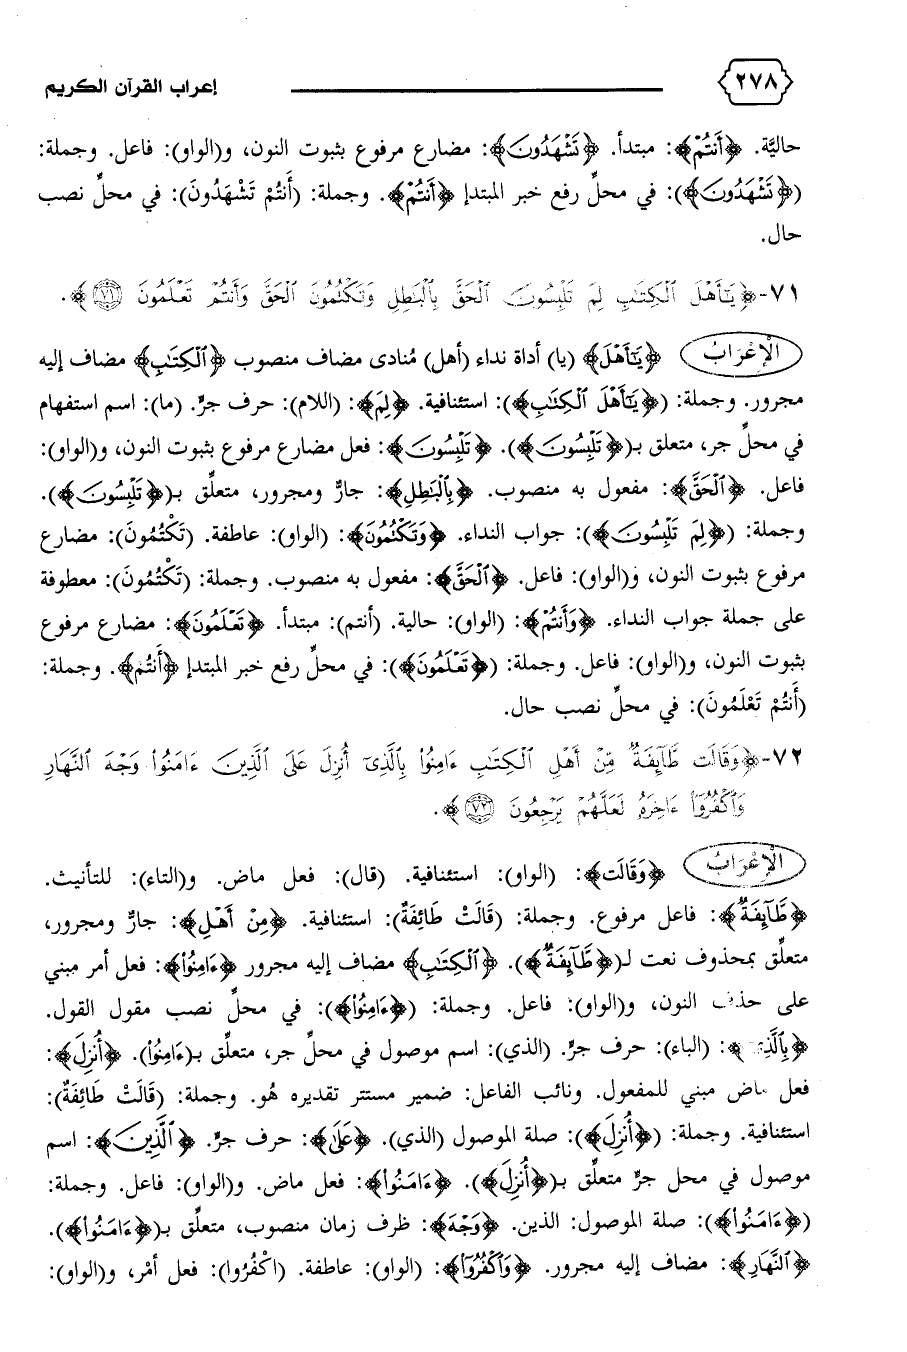 ٢٧٨ إعراب القرآن الكريم
حاليَّة. ﴿أَنتُمْ﴾: مبتدأ. ﴿تَشْهَدُونَ﴾: مضارع مرفوع بثبوت النون، و(الواو): فاعل. وجملة:
(﴿تَشْهَدُونَ﴾): في محلِّ رفع خبر المبتدإ ﴿أَنتُمْ﴾. وجملة: (أَنتُمْ تَشْهَدُونَ): في محلِّ نصب
حال.
٧١-﴿يَٰٓأَهْلَ ٱلْكِتَٰبِ لِمَ تَلْبِسُونَ ٱلْحَقَّ بِٱلْبَٰطِلِ وَتَكْتُمُونَ ٱلْحَقَّ وَأَنتُمْ تَعْلَمُونَ ٧١﴾.
الإِعْرَابُ ﴿يَٰٓأَهْلَ﴾ (يا) أداة نداء (أهل) مُنادى مضاف منصوب ﴿ٱلْكِتَٰبِ﴾ مضاف إليه
مجرور. وجملة: (﴿يَٰٓأَهْلَ ٱلْكِتَٰبِ﴾): استئنافية. ﴿لِمَ﴾: (اللام): حرف جرٍّ. (ما): اسم استفهام
في محلِّ جر، متعلق بـ(﴿تَلْبِسُونَ﴾). ﴿تَلْبِسُونَ﴾: فعل مضارع مرفوع بثبوت النون، و(الواو):
فاعل. ﴿ٱلْحَقَّ﴾: مفعول به منصوب. ﴿بِٱلْبَٰطِلِ﴾: جارٌّ ومجرور، متعلِّق بـ(﴿تَلْبِسُونَ﴾).
وجملة: (﴿لِمَ تَلْبِسُونَ﴾): جواب النداء. ﴿وَتَكْتُمُونَ﴾: (الواو): عاطفة. (تَكْتُمُونَ): مضارع
مرفوع بثبوت النون، و(الواو): فاعل. ﴿ٱلْحَقَّ﴾: مفعول به منصوب. وجملة: (تَكْتُمُونَ): معطوفة
على جملة جواب النداء. ﴿وَأَنتُمْ﴾: (الواو): حالية. (أنتم): مبتدأ. ﴿تَعْلَمُونَ﴾: مضارع مرفوع
بثبوت النون، و(الواو): فاعل. وجملة: (﴿تَعْلَمُونَ﴾): في محلِّ رفع خبر المبتدإ ﴿أَنتُمْ﴾. وجملة:
(أَنتُمْ تَعْلَمُونَ): في محلِّ نصب حال.
٧٢-﴿وَقَالَت طَّآئِفَةٌ مِّنْ أَهْلِ ٱلْكِتَٰبِ ءَامِنُوا۟ بِٱلَّذِىٓ أُنزِلَ عَلَى ٱلَّذِينَ ءَامَنُوا۟ وَجْهَ ٱلنَّهَارِ
وَٱكْفُرُوٓا۟ ءَاخِرَهُۥ لَعَلَّهُمْ يَرْجِعُونَ ٧٢﴾.
الإِعْرَابُ ﴿وَقَالَت﴾: (الواو): استئنافية. (قال): فعل ماض. و(التاء): للتأنيث.
﴿طَّآئِفَةٌ﴾: فاعل مرفوع. وجملة: (قَالَتْ طَائِفَةٌ): استئنافية. ﴿مِنْ أَهْلِ﴾: جارٌّ ومجرور،
متعلِّق بمحذوف نعت لـ(﴿طَّآئِفَةٌ﴾). ﴿ٱلْكِتَٰبِ﴾ مضاف إليه مجرور ﴿ءَامِنُوا۟﴾: فعل أمر مبني
على حذف النون، و(الواو): فاعل. وجملة: (﴿ءَامِنُوا۟﴾): في محلِّ نصب مقول القول.
﴿بِٱلَّذِىٓ﴾: (الباء): حرف جرٍّ. (الذي): اسم موصول في محلِّ جر، متعلِّق بـ(ءَامِنُوا۟). ﴿أُنزِلَ﴾:
فعل ماض مبني للمفعول. ونائب الفاعل: ضمير مستتر تقديره هُو. وجملة: (قَالَتْ طَائِفَةٌ):
استئنافية. وجملة: (﴿أُنزِلَ﴾): صلة الموصول (الذي). ﴿عَلَى﴾: حرف جرٍّ. ﴿ٱلَّذِينَ﴾: اسم
موصول في محل جرٍّ متعلِّق بـ(﴿أُنزِلَ﴾). ﴿ءَامَنُوا۟﴾: فعل ماض. و(الواو): فاعل. وجملة:
(﴿ءَامَنُوا۟﴾): صلة الموصول: الذين. ﴿وَجْهَ﴾: ظرف زمان منصوب، متعلِّق بـ(﴿ءَامَنُوا۟﴾).
﴿ٱلنَّهَارِ﴾: مضاف إليه مجرور. ﴿وَٱكْفُرُوٓا۟﴾: (الواو): عاطفة. (اكْفُرُوا): فعل أمْر، و(الواو):